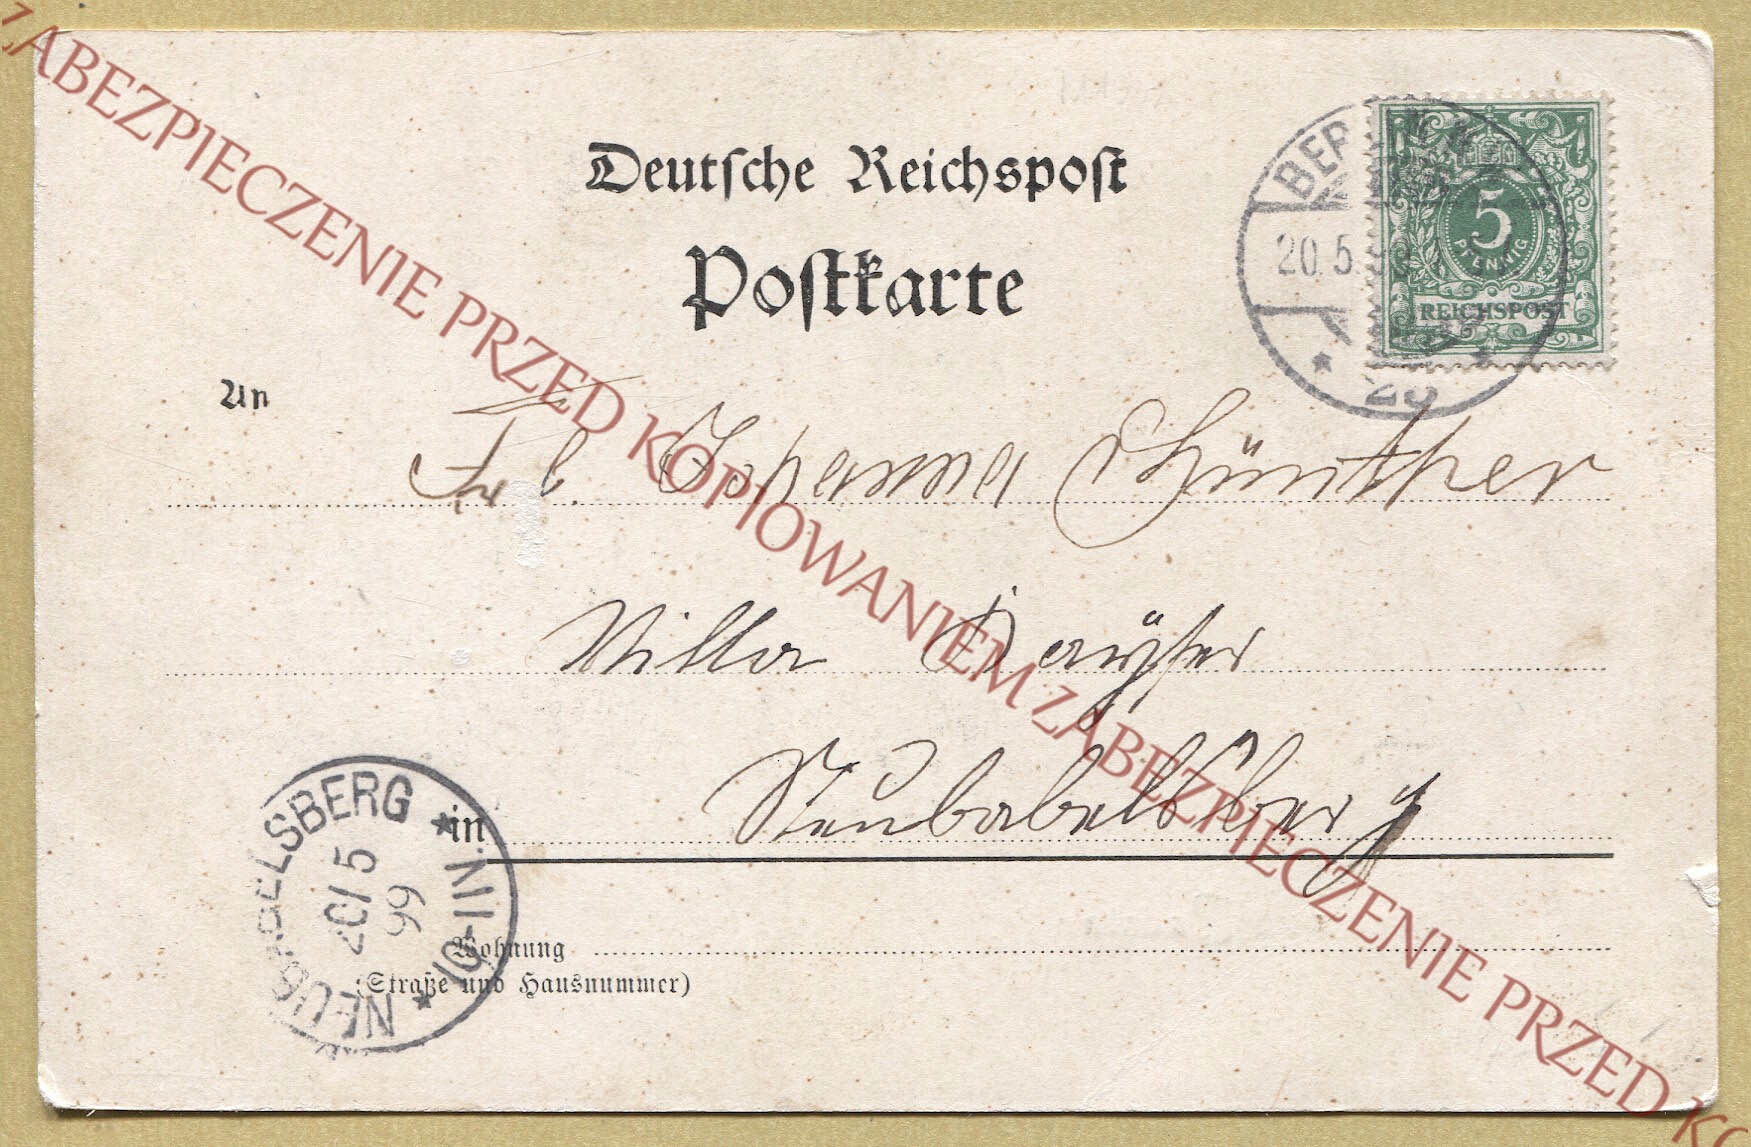 ZABEZPIECZENIE PRZED KOPIOWANIEM ZABEZPIECZENIE PRZED
Deutsche Reichspost
Postkarte
BERLIN
20.5.99
5
PFENNIG
REICHSPOST
An
Frl. Johanna Günther
Villa
Neubabelsberg
in
NEUBABELSBERG
20/5
99
10-11N
Wohnung
(Straße und Hausnummer)